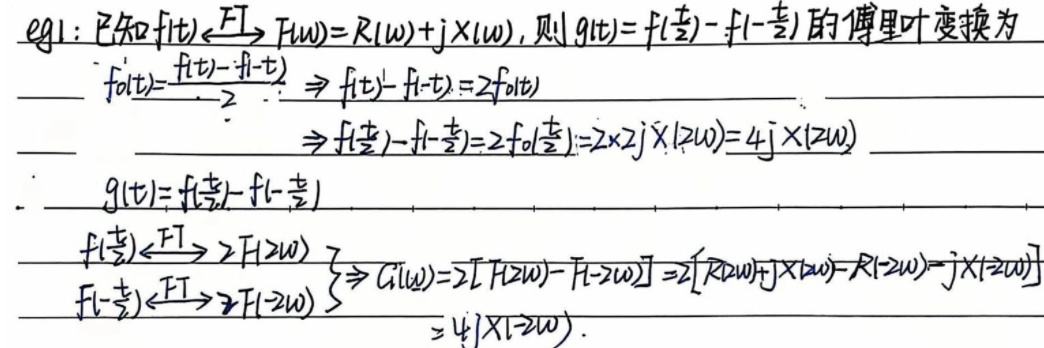 eg1: 已知 f(t) <FT> F(ω)=R(ω)+jX(ω), 则 g(t)=f(t/2)-f(-t/2) 的傅里叶变换为
fo(t)=f(t)-f(-t)/2 ⇒ f(t)-f(-t)=2fo(t)
⇒ f(t/2)-f(-t/2)=2fo(t/2)=2×2jX(2ω)=4jX(2ω)
g(t)=f(t/2)-f(-t/2)
f(t/2) <FT> 2F(2ω)
f(-t/2) <FT> 2F(-2ω) } ⇒ G(ω)=2[F(2ω)-F(-2ω)]=2[R(2ω)+jX(2ω)-R(-2ω)-jX(-2ω)]
=4jX(-2ω).